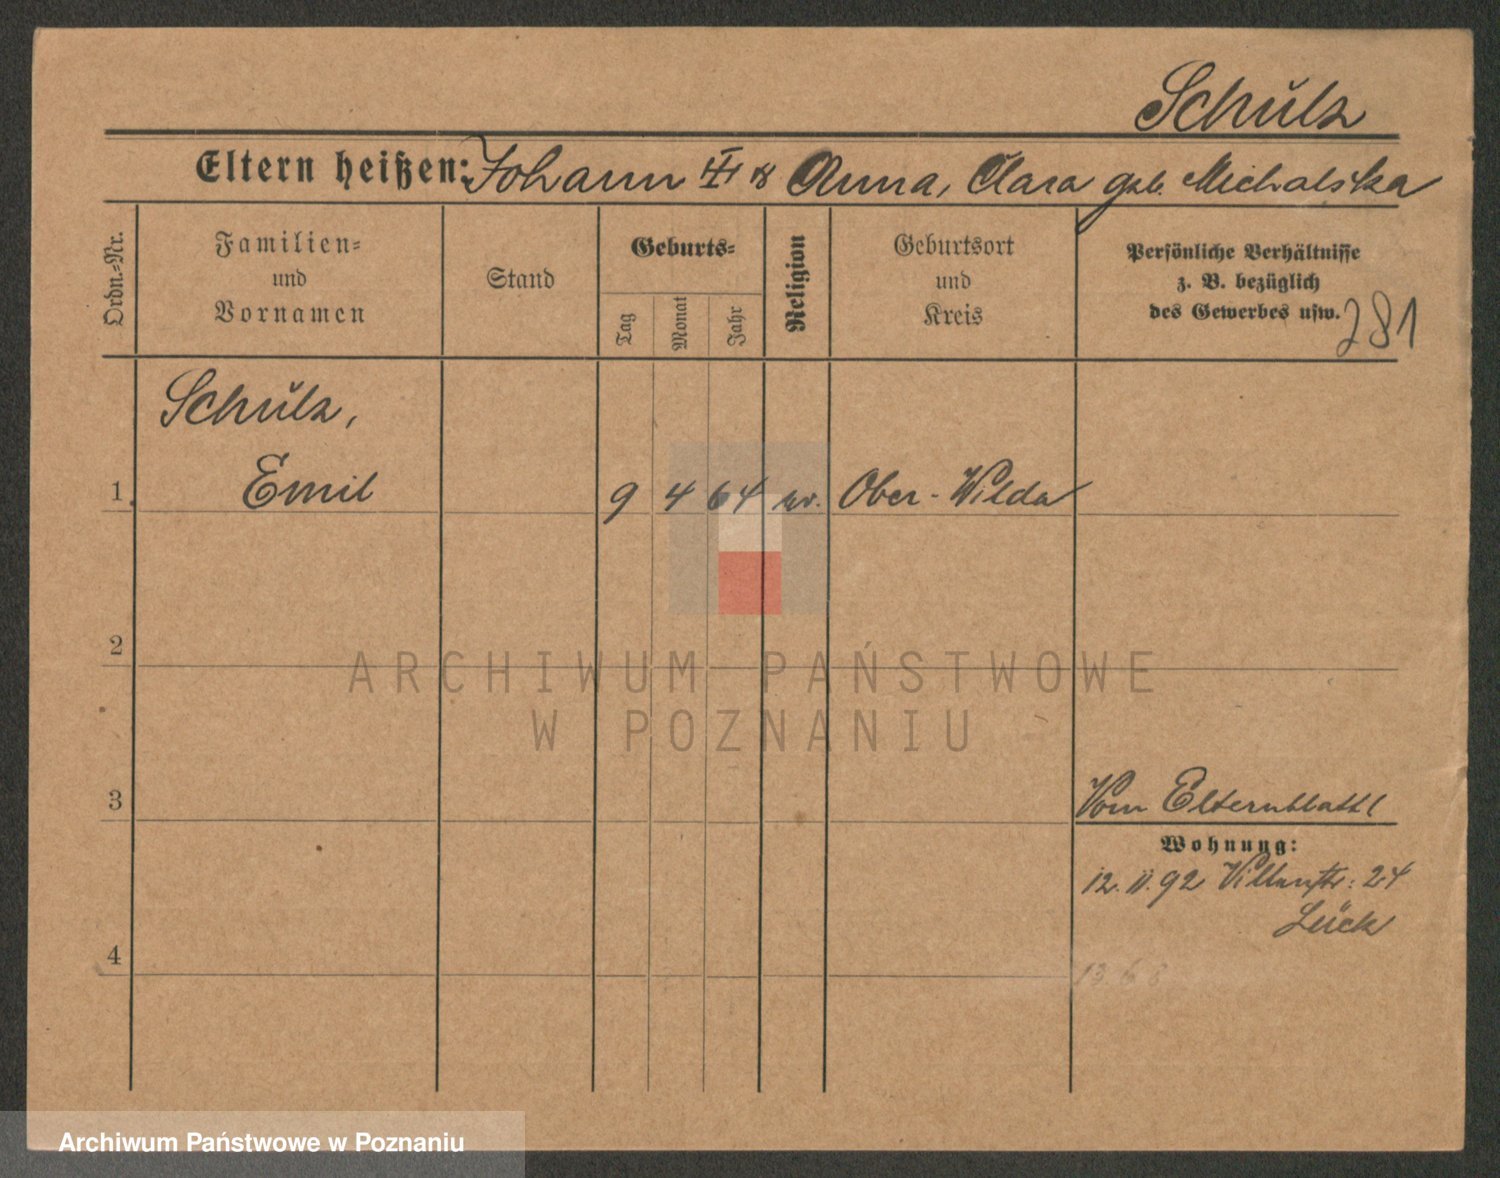 Schulz
Eltern heißen: Johann III & Anna, Clara geb. Michalska
Ordn.-Nr.
Familien-
und
Vornamen
Stand
Geburts-
Tag
Monat
Jahr
Religion
Geburtsort
und
Kreis
Persönliche Verhältnisse
z. B. bezüglich
des Gewerbes usw.
281
Schulz,
1. Emil 9 4 64 ev. Ober-Wilda
2
3
Vom Elternblatt
Wohnung:
12. 11. 92 24
Lück
4
13
ARCHIWUM PAŃSTWOWE
W POZNANIU
Archiwum Państwowe w Poznaniu